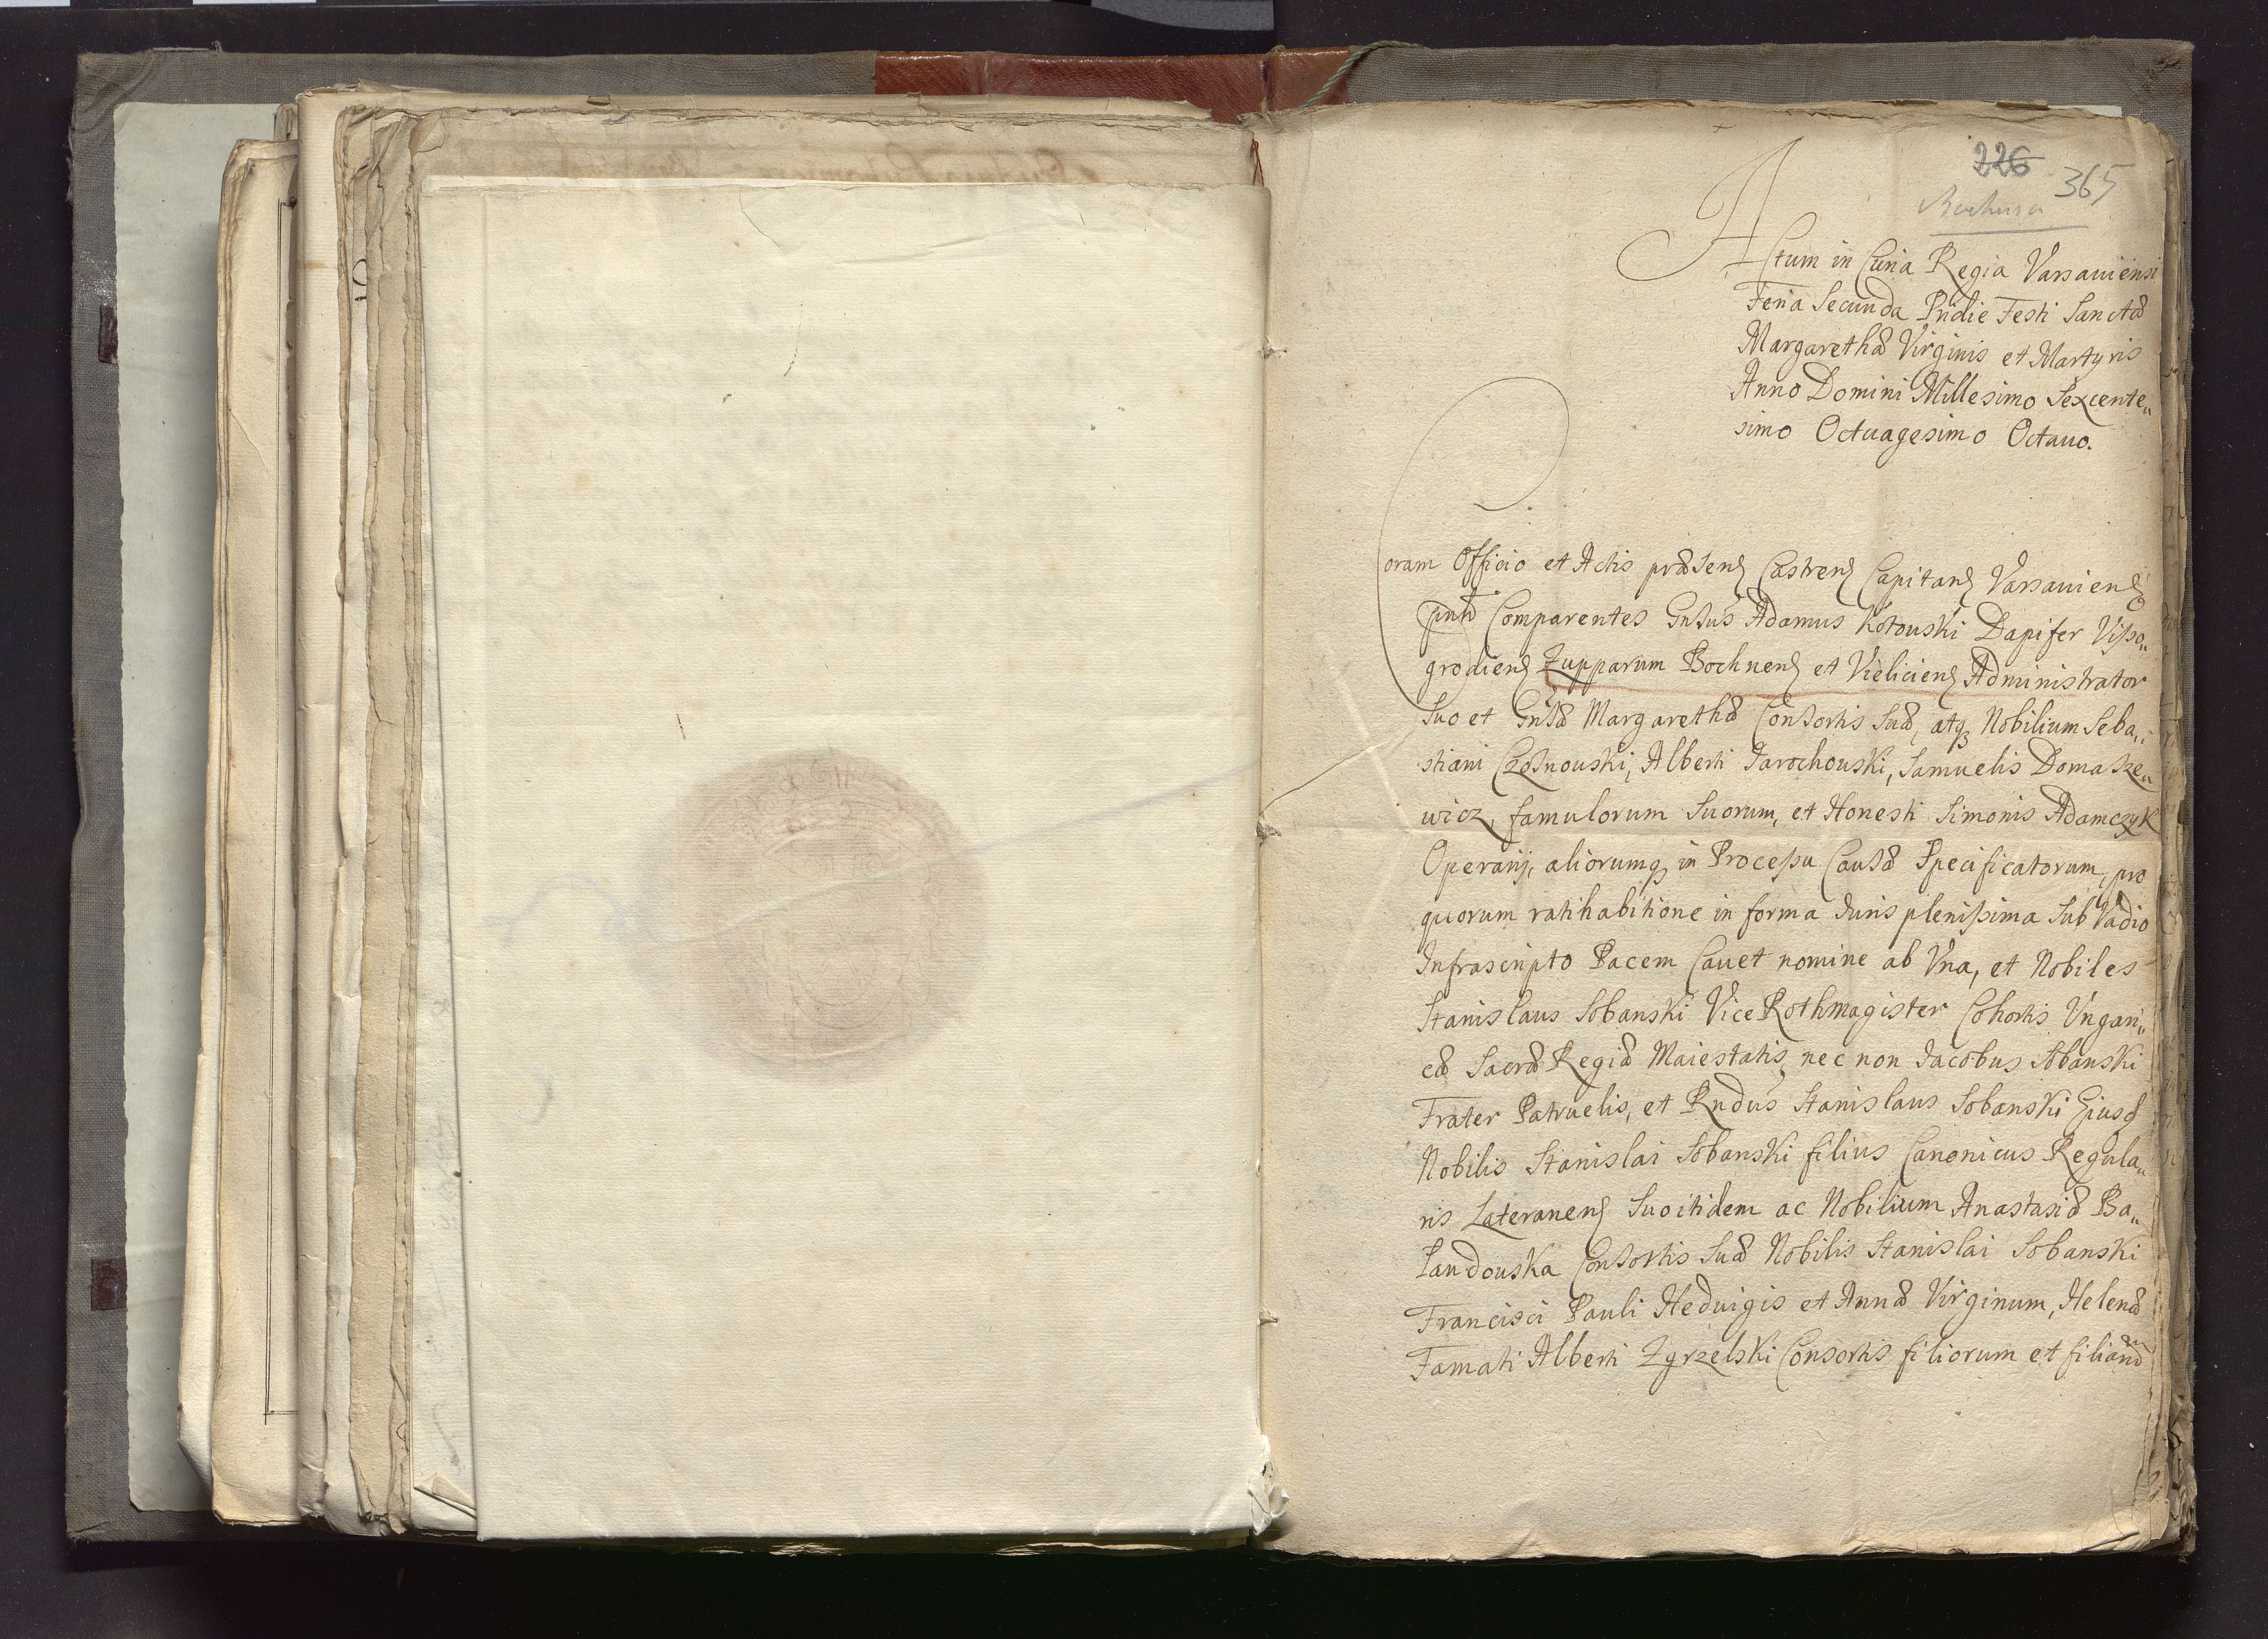 226 365
Bochnia
Actum in Curia Regia Varsauiensi
Feria Secunda Pridie Festi Sanctæ
Margarethæ Virginis et Martyris
Anno Domini Millesimo Sexcente„
simo Octuagesimo Octauo.
Coram Officio et Actis præsen Castren Capitan Varsauien
Comparentes Gnsus Adamus Kotouski Dapifer Visso„
grodien Zupparum Bochnen et Vieliciens Administrator
Suo et Gnsæ Margarethæ Consortis Suæ, atq Nobilium Seba„
stiani Czosnouski, Alberti Jarochouski, Samuelis Domasze„
wicz, famulorum Suorum, et Honesti Simonis Adamczyk
Operarij, aliorumq in Processu Causæ Specificatorum, pro
quorum ratihabitione in forma Juris plenissima Sub Vadio
Infrascripto Pacem Cauet nomine ab Vna, et Nobiles
Stanislaus Sobanski Vice Rothmagister Cohortis Vngari„
cæ Sacræ Regiæ Maiestatis, nec non Jacobus Sobanski
Frater Patruelis, et Rndus Stanislaus Sobanski Eiusd
Nobilis Stanislai Sobanski filius Canonicus Regula„
ris Lateranen Suo itidem ac Nobilium Anastasiæ Ba„
Landouska Consortis Suæ Nobilis Stanislai Sobanski
Francisci Pauli Heduigis et Annæ Virginum, Helenæ
Famati Alberti Zgrzelski Consortis filiorum et filiarum